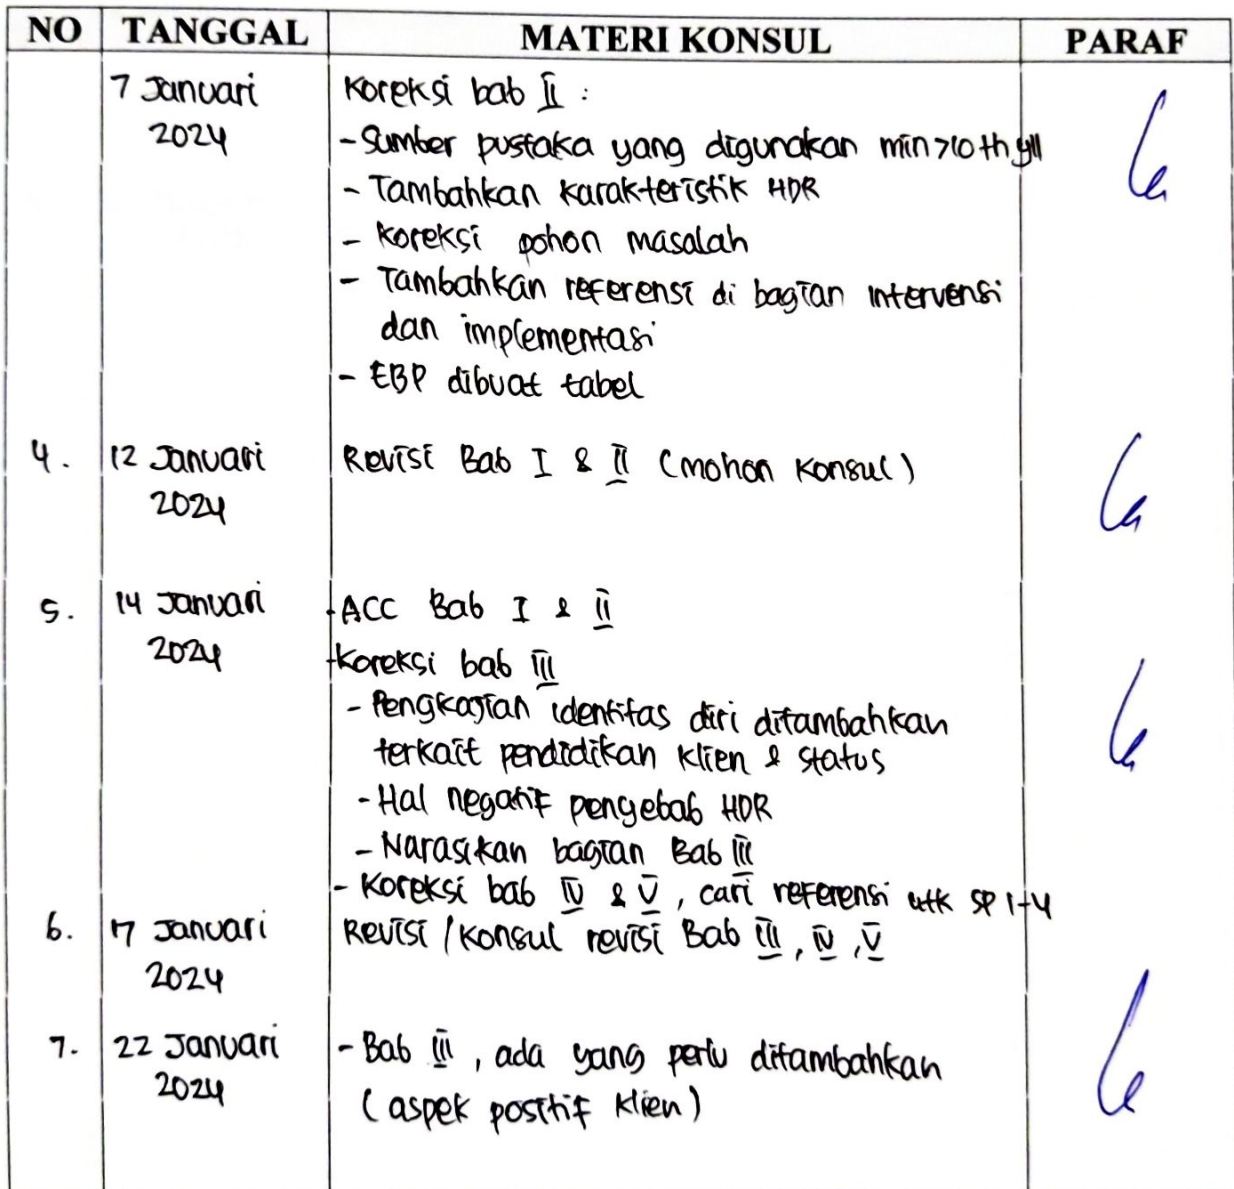 NO TANGGAL MATERI KONSUL PARAF
7 Januari Koreksi bab II :
2024 - Sumber pustaka yang digunakan min >10 th yll
- Tambahkan karakteristik HDR
- Koreksi pohon masalah
- Tambahkan referensi di bagian intervensi
dan implementasi
- EBP dibuat tabel
4. 12 Januari Revisi Bab I & II (mohon konsul)
2024
5. 14 Januari - ACC Bab I & II
2024 - Koreksi bab III
- Pengkajian identitas diri ditambahkan
terkait pendidikan klien & status
- Hal negatif pengebab HDR
- Narasikan bagian Bab III
- Koreksi bab IV & V, cari referensi utk SP 1-4
6. 17 Januari Revisi / Konsul revisi Bab III, IV, V
2024
7. 22 Januari - Bab III, ada yang perlu ditambahkan
2024 (aspek positif klien)